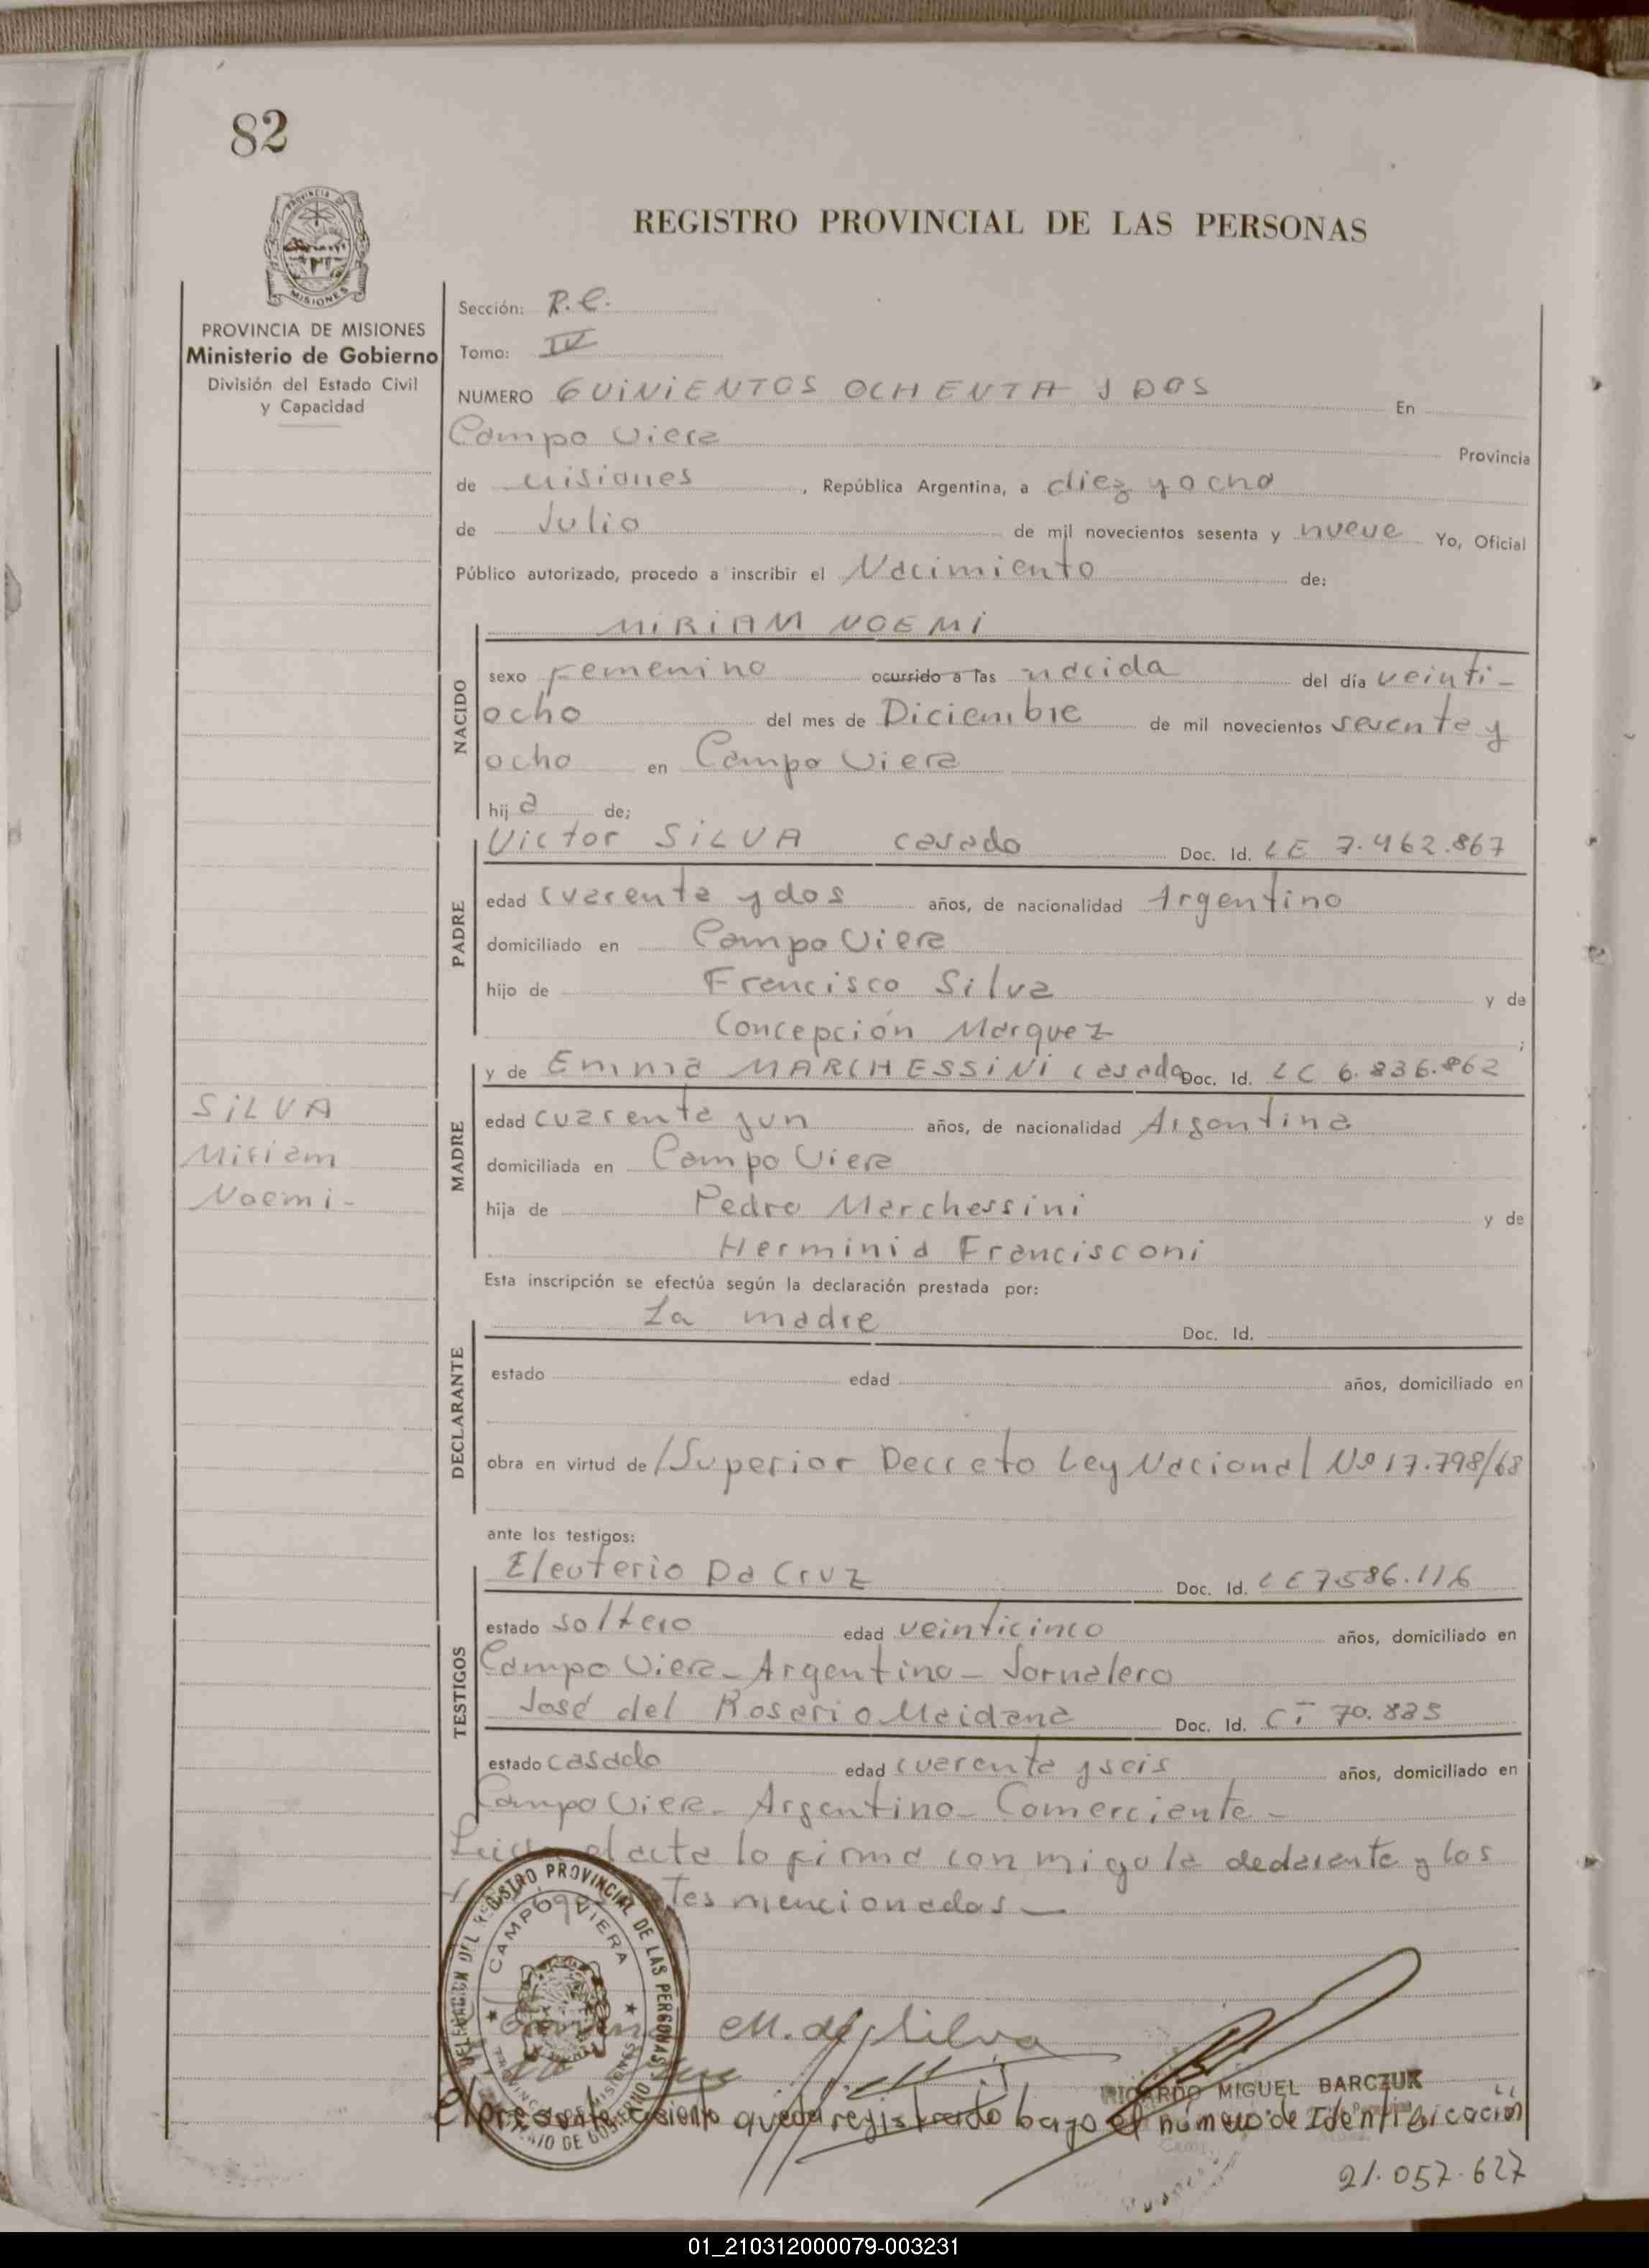 82
REGISTRO PROVINCIAL DE LAS PERSONAS
PROVINCIA DE
MISIONES
PROVINCIA DE MISIONES
Ministerio de Gobierno
División del Estado Civil
y Capacidad
Sección: R.C.
Tomo: IV
NUMERO QUINIENTOS OCHENTA Y DOS En
Campo Viera Provincia
de Misiones, República Argentina, a diez y ocho
de Julio de mil novecientos sesenta y nueve Yo, Oficial
Público autorizado, procedo a inscribir el Nacimiento de:
NACIDO
MIRIAM NOEMI
sexo Femenino ocurrido a las nacida del día veinti-
ocho del mes de Diciembre de mil novecientos sesenta y
ocho en Campo Viera
hija de;
PADRE
Victor SILVA casado Doc. Id. LE 7.462.867
edad cuarenta y dos años, de nacionalidad Argentino
domiciliado en Campo Viera
hijo de Francisco Silva y de
Concepción Marquez ;
MADRE
y de Emma MARCHESSINI casada Doc. Id. LC 6.836.862
edad cuarenta y un años, de nacionalidad Argentina
domiciliada en Campo Viera
hija de Pedro Marchessini y de
Herminia Francisconi
SILVA
Miriam
Noemi-
Esta inscripción se efectúa según la declaración prestada por:
DECLARANTE
La madre Doc. Id.
estado edad años, domiciliado en
obra en virtud de /Superior Decreto Ley Nacional Nº 17.798/68
ante los testigos:
TESTIGOS
Eleuterio Da Cruz Doc. Id. LE 7.586.116
estado soltero edad veinticinco años, domiciliado en
Campo Viera - Argentino - Jornalero
José del Rosario Maidana Doc. Id. CI 70.835
estado casado edad cuarenta y seis años, domiciliado en
Campo Viera - Argentino - Comerciante -
el acta la firma con migo la declarante y los
mencionados -
DELEGACION DEL REGISTRO PROVINCIAL DE LAS PERSONAS
CAMPO VIERA
PROVINCIA DE MISIONES
MINISTERIO DE GOBIERNO
M. de Silva
RICARDO MIGUEL BARCZUK
El presente asiento queda registrado bajo el número de Identificación
21.057.627
01_210312000079-003231